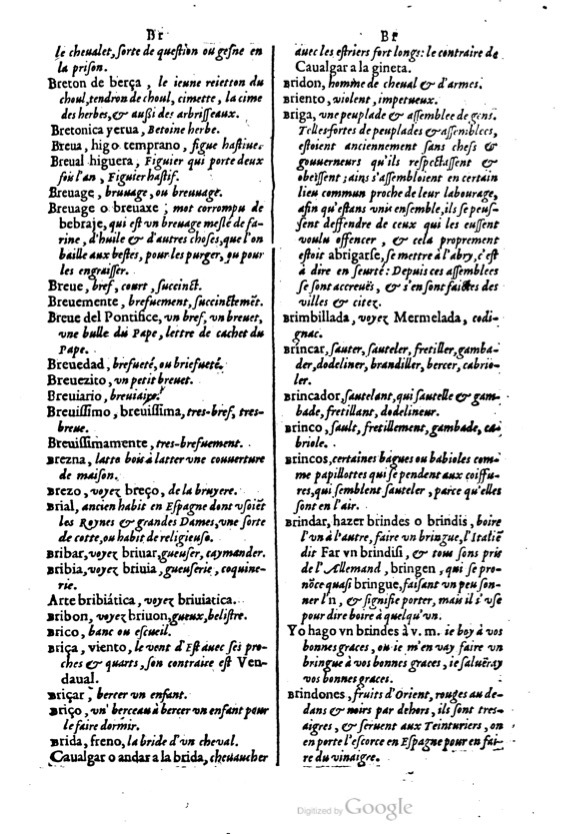 Br
le cheualet, sorte de question ou gesne en
la prison.
Breton de berça, le ieune reietton du
choul, tendron de choul, cimette, la cime
des herbes, & aussi des arbrisseaux.
Bretonica yerua, Betoine herbe.
Breua, higo temprano, figue hastiue.
Breual higuera, Figuier qui porte deux
fois l'an, Figuier hastif.
Breuage, bruuage, ou breuuage.
Breuage o breuaxe, mot corrompu de
bebraje, qui est vn breuage meslé de fa-
rine, d'huile & d'autres choses, que l'on
baille aux bestes, pour les purger, ou pour
les engraisser.
Breue, bref, court, succinct.
Breuemente, brefuement, succinctemēt.
Breue del Pontifice, vn bref, vn breuet,
vne bulle du Pape, lettre de cachet du
Pape.
Breuedad, brefueté, ou briefueté.
Breuezito, vn petit breuet.
Breuiario, breuiaire.
Breuissimo, breuissima, tres-bref, tres-
breue.
Breuissimamente, tres-brefuement.
Brezna, latte bois à latter vne couuerture
de maison.
Brezo, voyez breço, de la bruyere.
Brial, ancien habit en Espagne dont vsoiēt
les Roynes & grandes Dames, vne sorte
de cotte, ou habit de religieuse.
Bribar, voyez briuar, gueuser, caymander.
Bribia, voyez briuia, gueuserie, coquine-
rie.
Arte bribiática, voyez briuiatica.
Bribon, voyez briuon, gueux, belistre.
Brico, banc ou escueil.
Briça, viento, le vent d'Est auec ses pro-
ches & quarts, son contraire est Ven-
daual.
Briçar, bercer vn enfant.
Briço, vn berceau à bercer vn enfant pour
le faire dormir.
Brida, freno, la bride d'vn cheval.
Caualgar o andar a la brida, cheuaucher
Br
auec les estriers fort longs: le contraire de
Caualgar a la gineta.
Bridon, homme de cheual & d'armes.
Briento, violent, impetueux.
Briga, vne peuplade & assemblee de gens.
Telles fortes de peuplades & assemblees,
estoient anciennement sans chefs &
gouuerneurs qu'ils respectassent &
obeissent; ains s'assembloient en certain
lieu commun proche de leur labourage,
afin qu'estans vnis ensemble, ils se peus-
sent deffendre de ceux qui les eussent
voulu offencer, & cela proprement
estoit abrigarse, se mettre à l'abry, c'est
à dire en seurté: Depuis ces assemblees
se sont accreuës, & s'en sont faictes des
villes & citez.
Brimbillada, voyez Mermelada, codi-
gnac.
Brincar, sauter, sauteler, fretiller, gamba-
der, dodeliner, brandiller, bercer, cabrio-
ler.
Brincador, sautelant, qui sautelle & gam-
bade, fretillant, dodelineur.
Brinco, sault, fretillement, gambade, ca-
briole.
Brincos, certaines bagues ou babioles com-
me papillottes qui se pendent aux coiffu-
res, qui semblent sauteler, parce qu'elles
sont en l'air.
Brindar, hazer brindes o brindis, boire
l'vn à l'autre, faire vn bringue, l'Italiē
dit Far vn brindisi, & tous sons pris
de l'Allemand, bringen, qui se pro-
nōce quasi bringue, faisant vn peu son-
ner l'n, & signifie porter, mais il s'vse
pour dire boire à quelqu'vn.
Yo hago vn brindes à v. m. ie boy à vos
bonnes graces, ou ie m'en vay faire vn
bringue à vos bonnes graces, ie salüeray
vos bonnes graces.
Brindones, fruits d'Orient, rouges au de-
dans & noirs par dehors, ils sont tres-
aigres, & seruent aux Teinturiers, on
en porte l'escorce en Espagne pour en fai-
re du vinaigre.
Digitized by Google